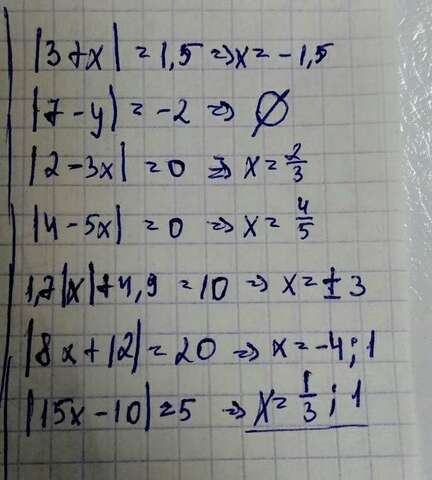 |3+x| = 1,5 => x = -1,5
|7-y| = -2 => ∅
|2-3x| = 0 => x = 2/3
|4-5x| = 0 => x = 4/5
1,7|x|+4,9 = 10 => x = ±3
|8x+12| = 20 => x = -4; 1
|15x-10| = 5 => x = 1/3; 1